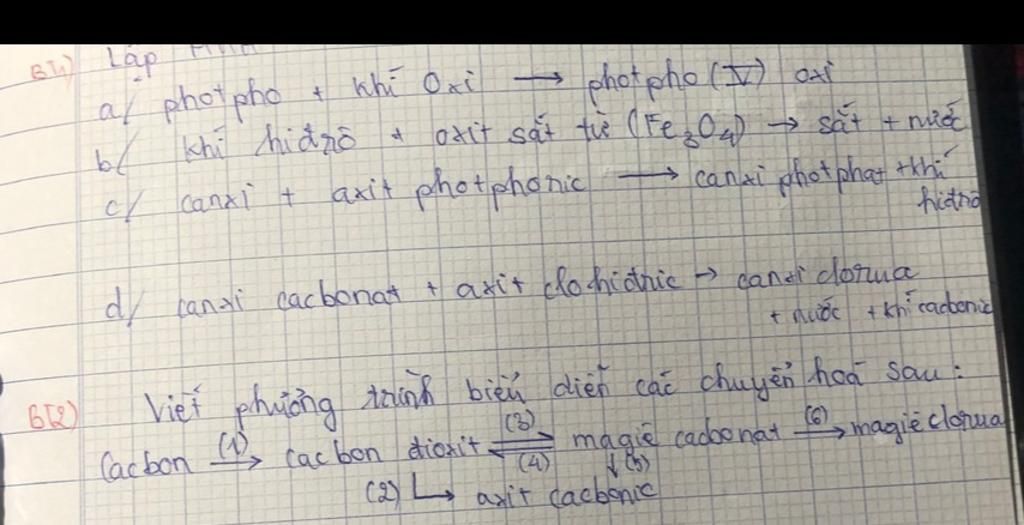 B1) Lập
a/ photpho + khí Oxi → photpho (V) oxi
b/ khí hiđrô + oxit sắt từ (Fe3O4) → sắt + nước
c/ canxi + axit photphoric → canxi photphat + khí
hiđrô
d/ canxi cacbonat + axit clohiđric → canxi clorua
+ nước + khí cacbonic
B2) Viết phương trình biểu diễn các chuyển hoá sau:
(3) (6)
Cacbon (1)→ cacbon đioxit ⇌ magiê cacbonat → magiê clorua
(4) ↓(5)
(2) ↳ axit cacbonic